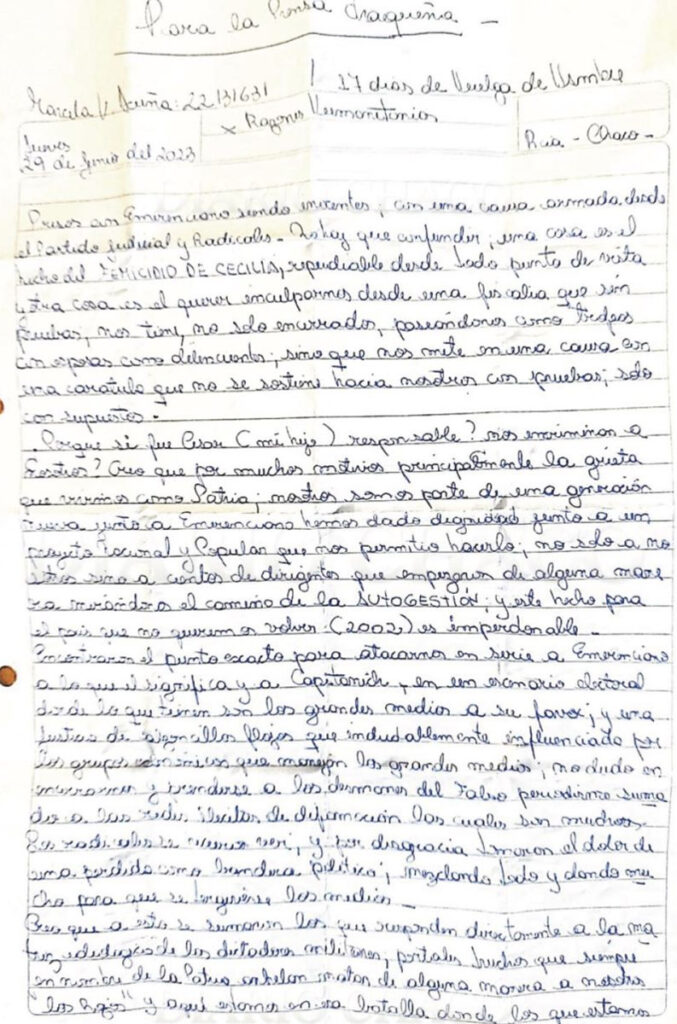 Para la Prensa Chaqueña -
17 dias de Huelga de Hambre
Marcela V. Acuña: 22131631
x Razones Humanitarias
Jueves
29 de Junio del 2023
Rcia - Chaco -
Presos con Emerenciano siendo inocentes, con una causa armada desde
el Partido Judicial y Radicales - No hay que confundir, una cosa es el
hecho del FEMICIDIO DE CECILIA, repudiable desde todo punto de vista
y otra cosa es el querer inculparnos desde una fiscalia que sin
pruebas, nos tiene, no solo encerrados, paseándonos como trofeos
con esposas como delincuentes; sino que nos mete en una causa con
una caratula que no se sostiene hacia nosotros con pruebas; solo
con supuestos -
. Porque si fue Cesar (mi hijo) responsable? nos incriminan a
nosotros? Creo que por muchos motivos principalmente la grieta
que vivimos como Patria; nosotros somos parte de una generación
nueva junto a Emerenciano hemos dado dignidad junto a un
proyecto Nacional y Popular que nos permitio hacerlo; no solo a no
sotros sino a cientos de dirigentes que empezaron de alguna mane
ra mirándonos el camino de la AUTOGESTIÓN; y este hecho para
el pais que no queremos volver (2002) es imperdonable -
Encontraron el punto exacto para atacarnos en serie a Emerenciano
a lo que el significa y a Capitanich, en un escenario electoral
donde lo que tienen son los grandes medios a su favor; y una
Justicia de flojos que indudablemente influenciado por
los grupos económicos que manejan los grandes medios; no dudo en
encerrarnos y rendirse a los del Falso periodismo suma
do a las redes ilicitas de difamación las cuales son muchas.
Los radicales se vieron ver; y por desgracia tomaron el dolor de
una perdida como bandera politica; mezclando todo y dando mu
cho para que se los medios -
Creo que a esto se sumaron los que responden directamente a la ma
triz ideologica de los dictadores militares, portales truchos que siempre
en nombre de la Patria anhelan matar de alguna manera a nosotros
"los Rojos" y aqui estamos en esa batalla donde los que estamos